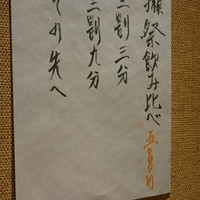 獺祭飲み比べ
二割三分
三割九分
その先へ